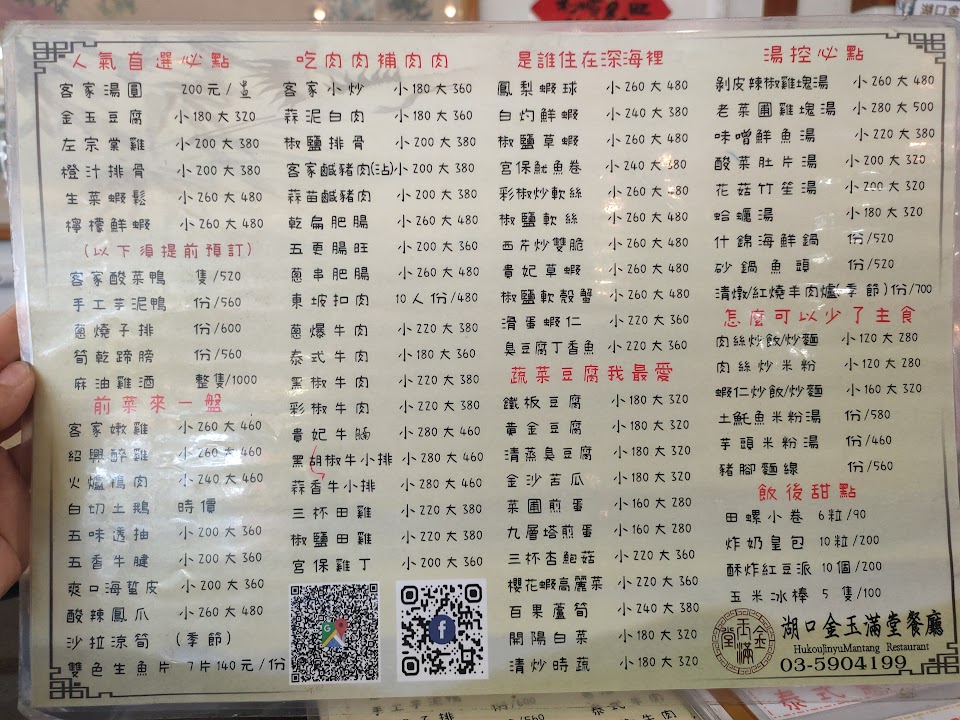 人氣首選必點
客家湯圓 200元/盅
金玉豆腐 小180大320
左宗棠雞 小200大380
橙汁排骨 小200大380
生菜蝦鬆 小260大480
檸檬鮮蝦 小260大480
(以下須提前預訂)
客家酸菜鴨 隻/520
手工芋泥鴨 份/560
蔥燒子排 份/600
筍乾蹄膀 份/560
麻油雞酒 整隻/1000
前菜來一盤
客家嫩雞 小260大460
紹興醉雞 小260大460
火爐鴨肉 小240大460
白切土鵝 時價
五味透抽 小200大360
五香牛腱 小200大360
爽口海蜇皮 小200大360
酸辣鳳爪 小260大480
沙拉涼筍 (季節)
雙色生魚片 7片140元/份
吃肉肉補肉肉
客家小炒 小180大360
蒜泥白肉 小180大360
椒鹽排骨 小200大380
客家鹹豬肉(沾)小200大380
蒜苗鹹豬肉 小200大380
乾扁肥腸 小260大480
五更腸旺 小200大360
蔥串肥腸 小260大480
東坡扣肉 10人份/480
蔥爆牛肉 小220大380
泰式牛肉 小180大360
黑椒牛肉 小220大380
彩椒牛肉 小220大380
貴妃牛腩 小280大460
黑胡椒牛小排 小280大460
蒜香牛小排 小280大460
三杯田雞 小220大380
椒鹽田雞 小220大380
宮保雞丁 小200大360
是誰住在深海裡
鳳梨蝦球 小260大480
白灼鮮蝦 小240大380
椒鹽草蝦 小260大480
宮保魷魚卷 小240大380
彩椒炒軟絲 小260大480
椒鹽軟絲 小260大480
西芹炒雙脆 小260大480
貴妃草蝦 小260大480
椒鹽軟殼蟹 小260大480
滑蛋蝦仁 小220大360
臭豆腐丁香魚 小220大360
蔬菜豆腐我最愛
鐵板豆腐 小180大320
黃金豆腐 小180大320
清蒸臭豆腐 小180大320
金沙苦瓜 小180大320
菜圃煎蛋 小160大280
九層塔煎蛋 小160大280
三杯杏鮑菇 小220大360
櫻花蝦高麗菜 小220大360
百果蘆筍 小240大380
開陽白菜 小180大320
清炒時蔬 小180大320
湯控必點
剝皮辣椒雞塊湯 小260大480
老菜圃雞塊湯 小280大500
味噌鮮魚湯 小220大380
酸菜肚片湯 小200大320
花菇竹笙湯 小200大320
蛤蠣湯 小180大320
什錦海鮮鍋 份/520
砂鍋魚頭 份/520
清燉/紅燒羊肉爐(季節)份/700
怎麼可以少了主食
肉絲炒飯/炒麵 小120大280
肉絲炒米粉 小120大280
蝦仁炒飯/炒麵 小160大320
土魠魚米粉湯 份/580
芋頭米粉湯 份/460
豬腳麵線 份/560
飯後甜點
田螺小卷 6粒/90
炸奶皇包 10粒/200
酥炸紅豆派 10個/200
玉米冰棒 5隻/100
金玉滿堂
湖口金玉滿堂餐廳
HukouJinyuMantang Restaurant
03-5904199